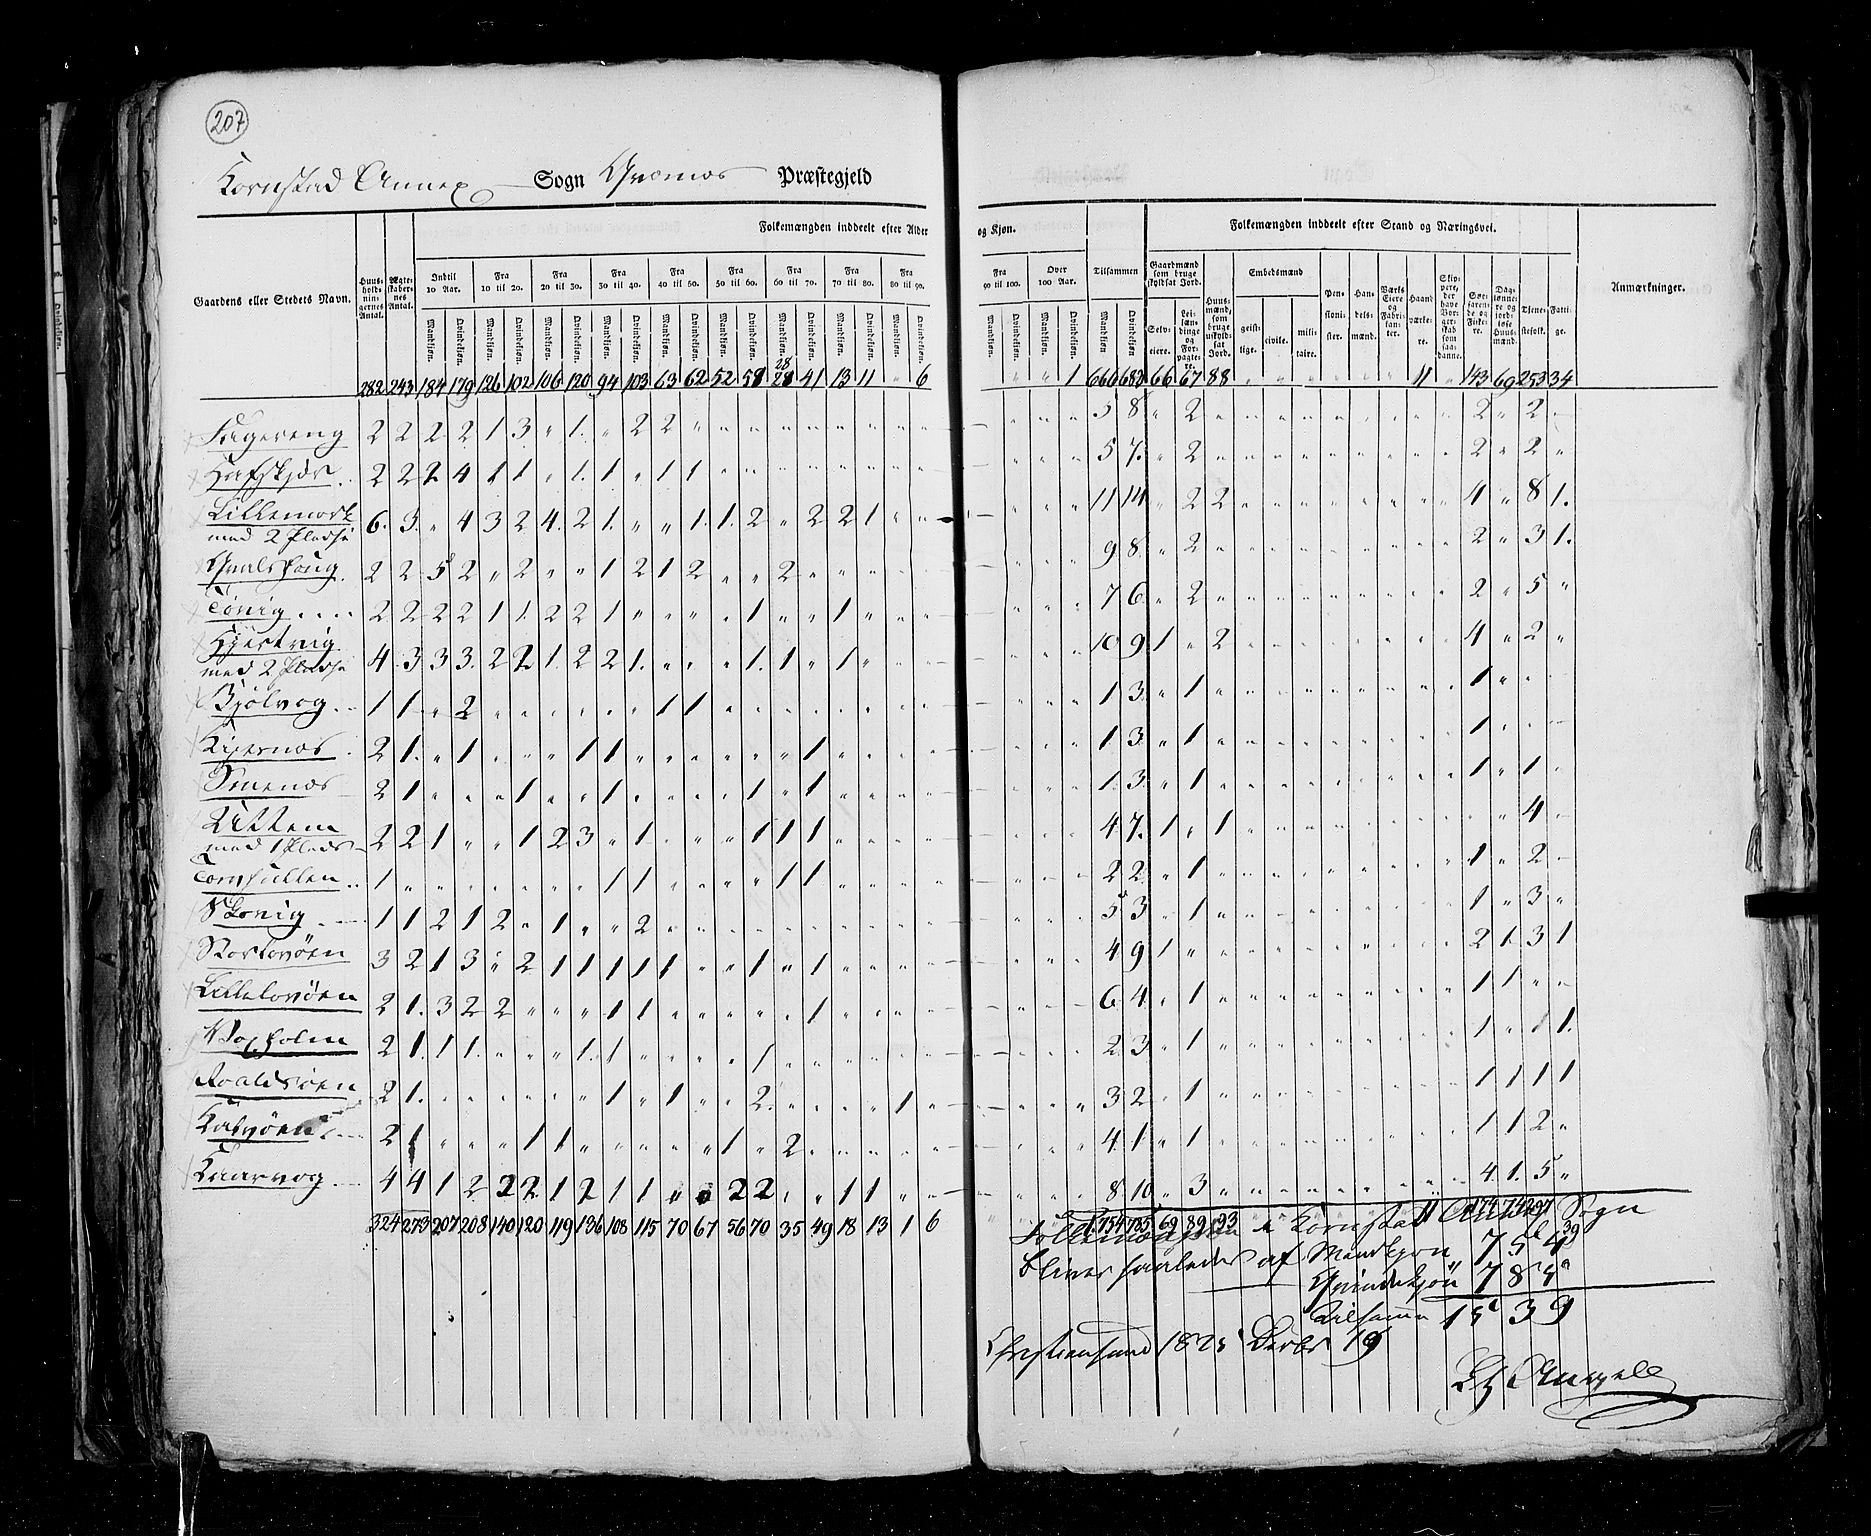 207
Kornstad Annex Sogn Qvernes Præstegjeld
Folkemængden inddeelt efter Alder og Kjøn.
Folkemængden inddeelt efter Stand og Næringsvei.
Gaardens eller Stedets Navn.
Huusholdningernes Antal.
Ægteskabernes Antal.
Indtil 10 Aar. Fra 10 til 20. Fra 20 til 30. Fra 30 til 40. Fra 40 til 50. Fra 50 til 60. Fra 60 til 70. Fra 70 til 80. Fra 80 til 90. Fra 90 til 100. Over 100 Aar. Tilsammen
Mandkjøn. Qvindekjøn.
Gaardmænd som bruge skyldsat Jord. Selveiere. Leilændinge og Forpagtere.
Huusmænd, som bruge uskyldsat Jord.
Embedsmænd geistlige. civile. militaire.
Pensionister. Handelsmænd. Værks Eiere og Fabrikanter. Haandværkere.
Skippere, der have Borgerskab som saadanne.
Søefarende og Fiskere.
Daglønnere og jordløse Huusmænd.
Tjenestefolk. Fattige.
Anmærkninger.
282 243 184 179 126 102 106 120 94 103 63 62 52 59 28 41 13 11 " 6 " " 1 666 683 66 67 88 " " " " " " 11 " 143 69 253 34
Fagereng 2 2 2 2 1 3 " 1 " 2 2 5 8 " 2 2 " 2
Hafskjær 2 2 2 4 1 1 " 1 1 " 1 1 5 7 " 2 2 " 2
Lillemork
med 2 Pladse 6 3 " 4 3 2 4 2 1 " " 1 1 2 " 2 2 1 11 14 " 2 2 4 " 8 1
Qvalshoug 2 2 5 2 " 2 " " 1 2 1 2 " " 2 9 8 " 2 2 " 3 1
Tøvig 2 2 2 2 1 1 2 2 1 " " " " 1 " " 1 7 6 " 2 2 " 5 "
med 2 Pladse 4 3 3 3 2 2 1 2 2 1 " " " 1 1 " 1 10 9 1 " 2 4 " 2
Bjølvog 1 1 " 2 " " " " " " 1 1 1 3 " 1 1
Kjernes 2 1 " 1 " " " 1 1 " " " " " " 1 1 3 " 1 1
Smenes 2 1 " " " 1 " " 1 " " " " 1 " 1 1 3 " 1 1 " 1
Uttem
med 1 Plads 2 2 1 " " 1 2 3 " 1 " " " 1 1 1 4 7 1 " 1 4
1 " " " " " " " 1 1 " " " " 1 1 2 2 " 1 1 " 2
1 1 2 1 2 " 1 " " 2 5 3 " 1 1 " 3
3 2 1 3 " 2 1 1 1 1 1 " " 1 " 1 4 9 1 " 2 1 3 1
2 1 3 2 2 " " " 1 1 " " " " " 1 6 4 " 1 1 1
Voxholm 2 1 1 1 " " " 1 1 " " " " 1 2 3 " 1 1 " 1 1
Roaldsøen 2 1 " " " " " " 1 " 1 " " 2 " " " " 1 3 2 " 1 1 1 1 1
2 1 " " " 1 1 " " " " " 1 " 2 4 1 " 1 1 1 2 "
Kaarvog 4 4 1 2 2 2 1 2 1 1 " " 2 2 " " 1 1 8 10 " 3 4 1 5 "
324 273 207 208 140 120 119 136 108 115 70 67 56 70 35 49 18 13 1 6 1 754 785 69 89 93 11 174 74 297 39
Folkemængden i Kornstad Annex Sogn
bliver saaledes af Mandkjøn 754
Qvindekjøn 785
Tilsamm 1539
Christiansund 1825 Decbr 19